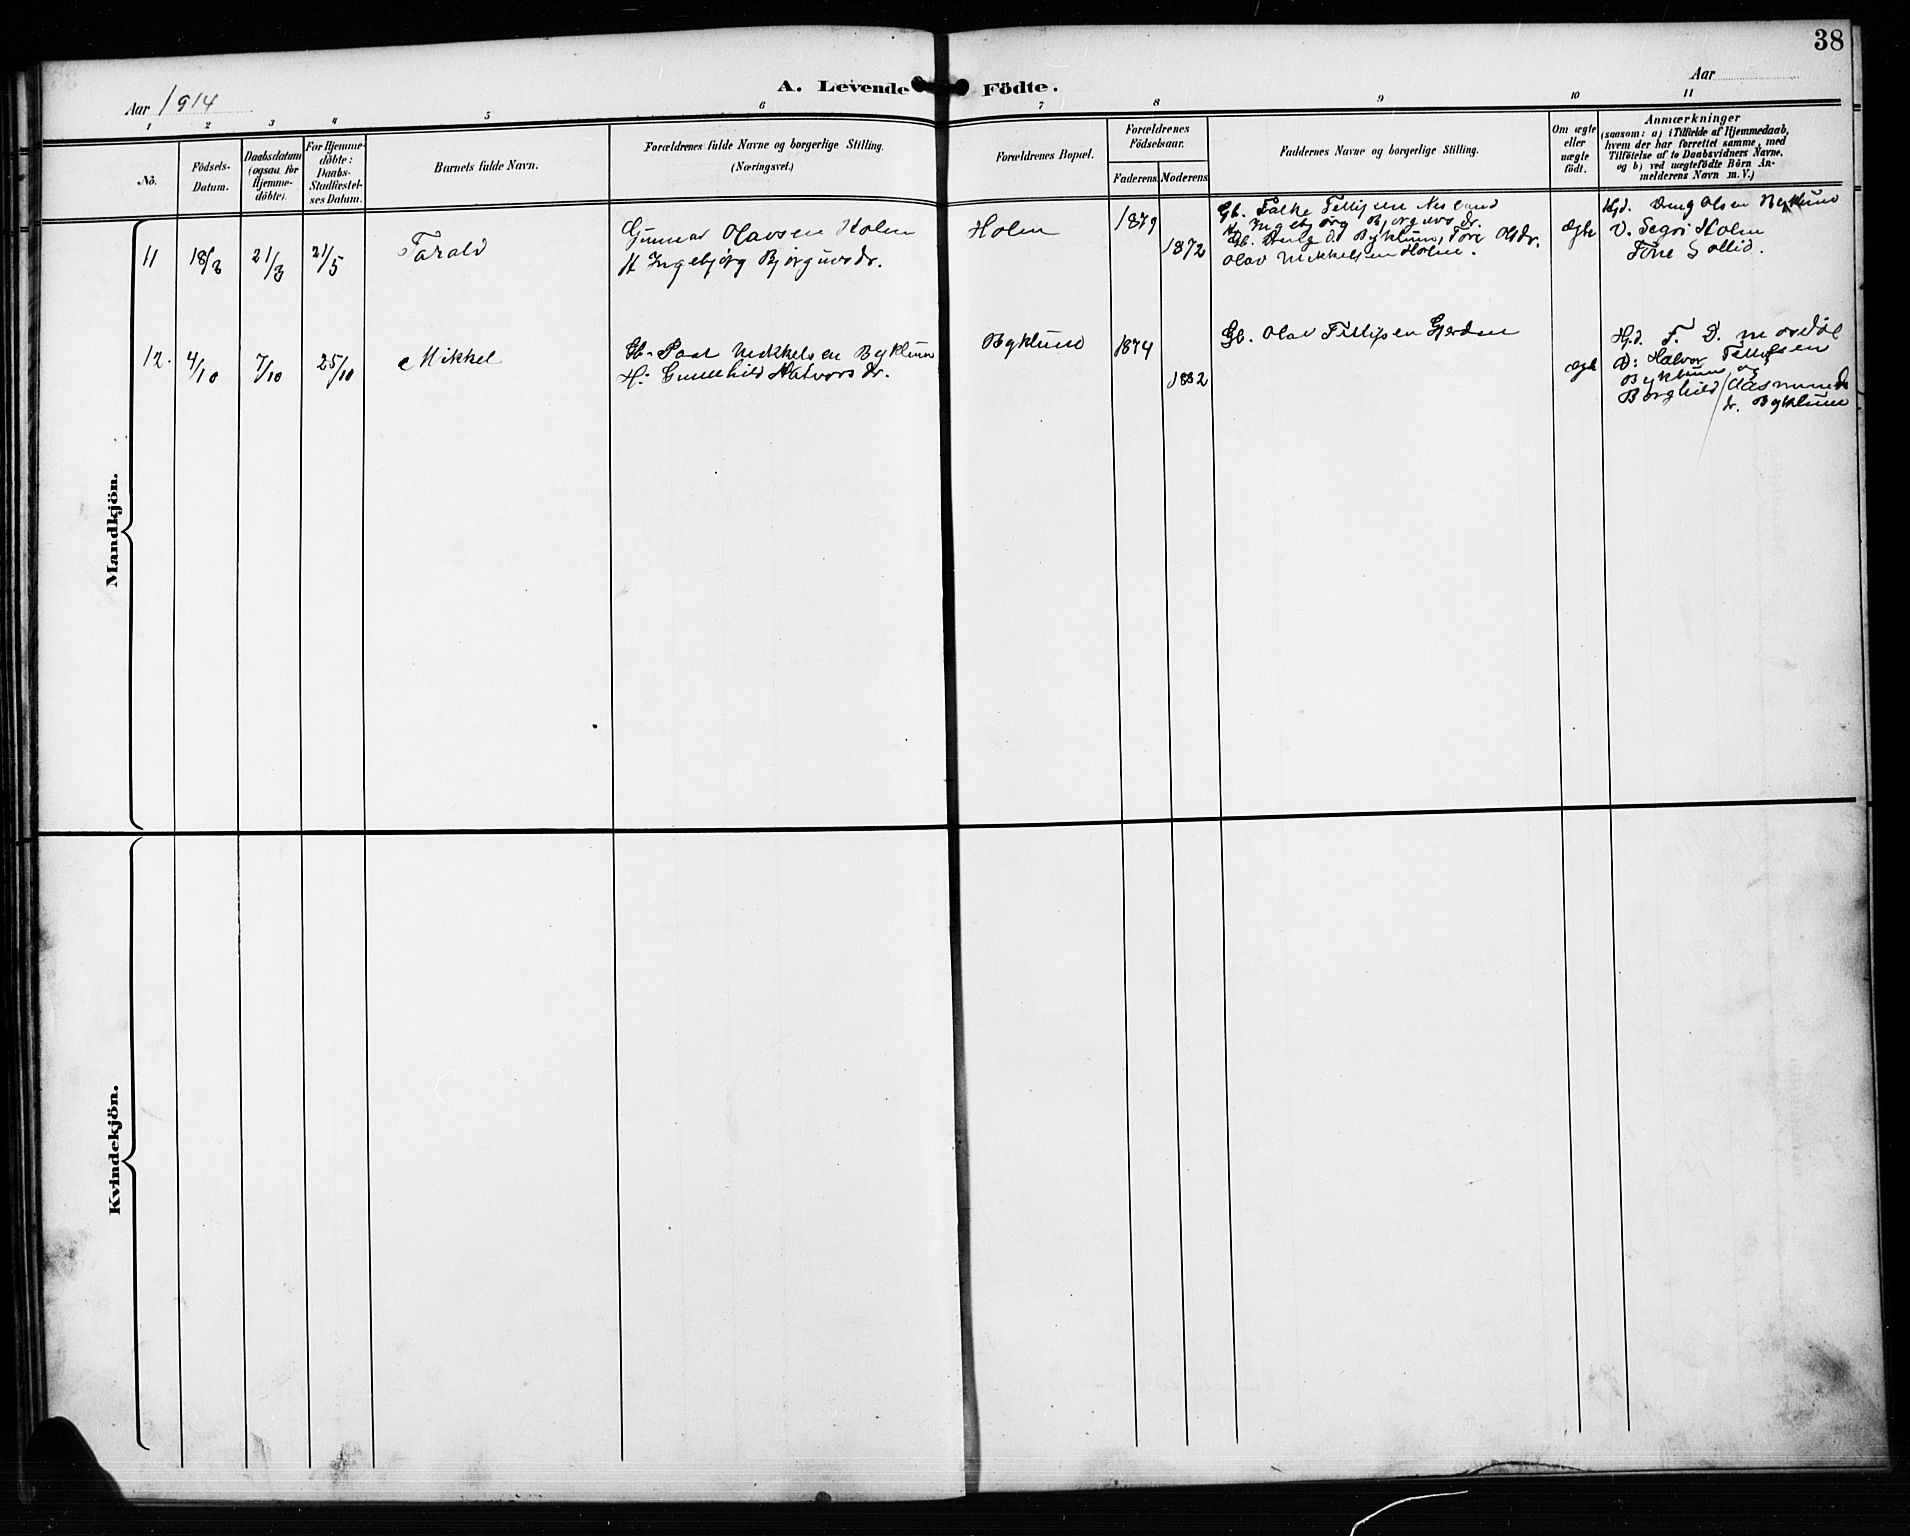 38
A. Levende Födte.
Aar 1914
Aar
1 2 3 4 5 6 7 8 9 10 11
No.
Födsels-
Datum.
Daabsdatum
(ogsaa for
Hjemme-
döbte).
For Hjemme-
döbte:
Daabs-
Stadfæstel-
ses Datum.
Barnets fulde Navn.
Forældrenes fulde Navne og borgerlige Stilling.
(Næringsvei.)
Forældrenes Bopæl.
Forældrenes
Födselsaar.
Faderens. Moderens.
Faddernes Navne og borgerlige Stilling.
Om ægte
eller
uægte
födt.
Anmærkninger
(saasom: a) i Tilfælde af Hjemmedaab,
hvem der har forrettet samme, med
Tilföielse af to Daabsvidners Navne,
og b) ved uægtefödte Börn An-
melderens Navn m. V.)
Mandkjön.
11 18/3 21/3 21/5 Tarald
Gunnar Olavsen Holen
H Ingebjørg Bjørguvsdr.
Holen
1879
1872
Gb. Falke Tellefsen Nesland
H. Ingebjørg Bjørguvsdr.
Byklum, Tore Olsdr.
Olav Mikkelsen Holen.
ægte
Hjd. Olsen Byklum
V. Segri Holen
Tone Sollid.
12. 4/10 7/10 25/10 Mikkel
Gb. Paal Mikkelsen Byklum
H. Gunnhild Halvorsdr.
Byklum
1874
1882
Gb. Olav Tellefsen Gjerden
ægte
Hjd. F. D. Mosdøl
D: Halvor Tellefsen
Byklum, og
Borghild Aasmunds
dr. Byklum
Kvindekjön.